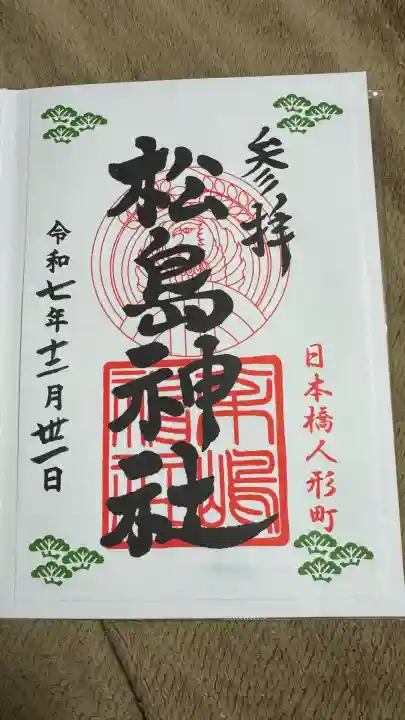 参拝
日本橋人形町
松島神社
令和七年十二月卅一日